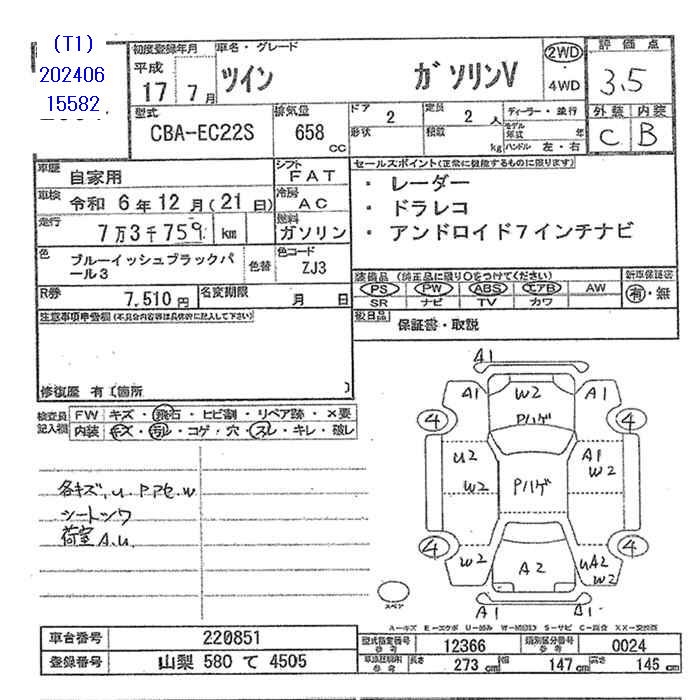 (T1)
202406
15582
初度登録年月
平成
17 7月
車名・グレード
ツイン ガソリンV
2WD
・
4WD
評価点
3.5
外装 内装
C B
型式
CBA-EC22S
排気量
658 CC
ドア
2
定員
2 人
形状
積載
kg
ディーラー・並行
モデル年式 年
ハンドル 左・右
車歴
自家用
シフト
FAT
車検
令和 6年 12月 (21日)
冷房
AC
走行
7万3千759 km
燃料
ガソリン
色
ブルーイッシュブラックパール3
色替
色コード
ZJ3
R券
7,510円
名変期限
月 日
セールスポイント(正常に機能するものに限ります)
・ レーダー
・ ドラレコ
・ アンドロイド7インチナビ
装備品 (純正品に限り○をつけてください)
PS PW ABS エアB AW
SR ナビ TV カワ
新車保証書
有・無
後日品
保証書・取説
注意事項申告欄(不具合内容等は具体的に記入して下さい)
修復歴 有 [箇所 ]
検査員記入欄
FW キズ・飛石・ヒビ割・リペア跡・×要
内装 キズ・汚れ・コゲ・穴・スレ・キレ・破レ
各キズ,U.PアセW
シートシワ
荷室A.U.
A1
A1 W2 A1
Pハゲ
4 4
U2 A1
W2 W2
Pハゲ
4 4
W2 A2 UA2
W2
A1 A1
スペア
A-キズ E-エクボ U-凹み W-補修跡 S-サビ C-腐食 XX-交換済
車台番号 220851
登録番号 山梨 580 て 4505
型式指定番号 参考 12366
類別区分番号 参考 0024
車体証明用 参考 長さ 273 cm 幅 147 cm 高さ 145 cm